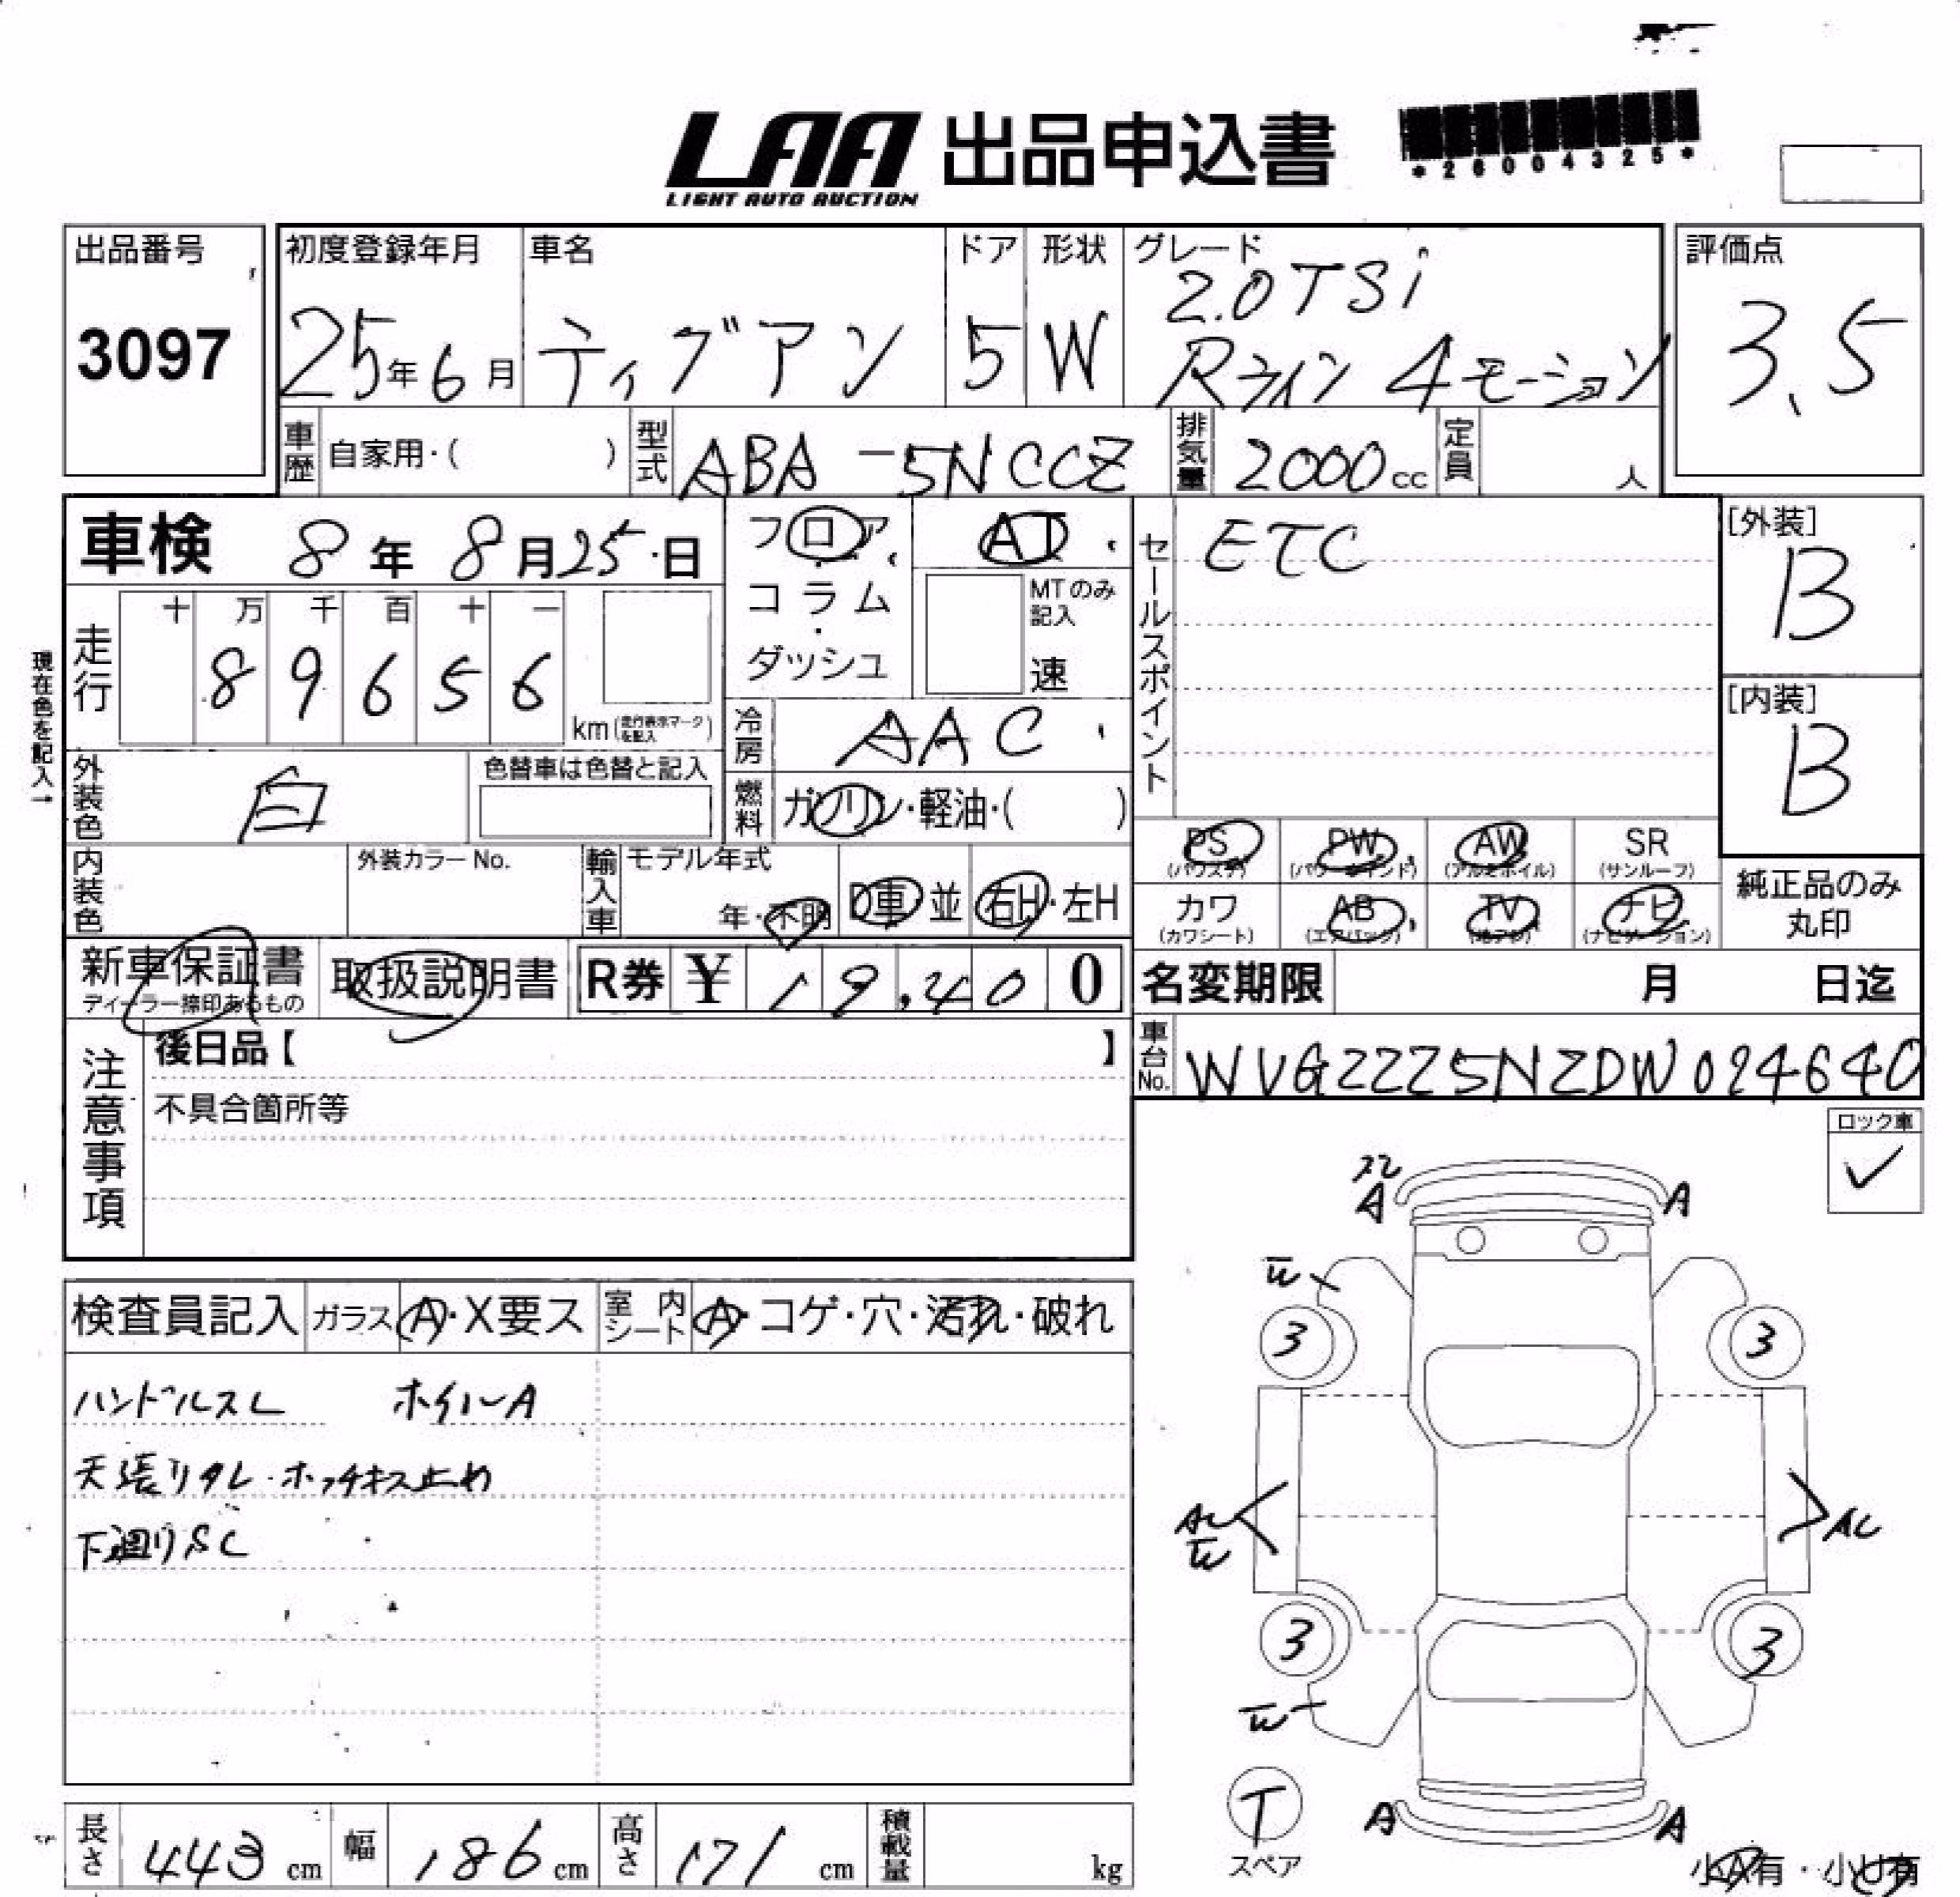 LAA 出品申込書
LIGHT AUTO AUCTION
*26004325*
出品番号
3097
初度登録年月
25年6月
車名
ティグアン
ドア
5
形状
W
グレード
2.0TSi
Rライン 4モーション
評価点
3.5
車歴 自家用・( )
型式 ABA-5NCCZ
排気量 2000cc
定員 人
車検 8年8月25日
フロア・
コラム
・
ダッシュ
AT
MTのみ
記入
速
セールスポイント
ETC
[外装]
B
[内装]
B
現在色を記入→
走行
十 万 千 百 十 一
8 9 6 5 6
km(走行表示マークを記入)
冷房 AAC
燃料 ガソリン・軽油・( )
外装色 白
色替車は色替と記入
内装色
外装カラーNo.
輸入車
モデル年式
年・不明
D車 並
右H・左H
PS
(パワステ)
PW
(パワーウインド)
AW
(アルミホイル)
SR
(サンルーフ)
カワ
(カワシート)
AB
(エアバック)
TV
(地デジ)
ナビ
(ナビゲーション)
純正品のみ
丸印
新車保証書
ディーラー捺印あるもの
取扱説明書
R券 ¥ 19,400
名変期限 月 日迄
車台No. WVGZZZ5NZDW094640
注意事項
後日品【 】
不具合箇所等
ロック車
✓
検査員記入
ガラス A・X要ス
室内シート A・コゲ・穴・汚れ・破れ
ハンドルスレ ホイールA
天張りタレ・ホッチキス止め
下廻りSC
A A
W
3 3
AC
W
AC
3 3
W
T
スペア
A A
小A有・小U有
長さ 443cm
幅 186cm
高さ 171cm
積載量 kg